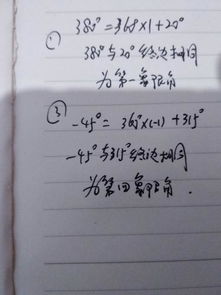 ① 380°=360°×1+20°
380°与20°终边相同
为第一象限角
③ -45°=360°×(-1)+315°
-45°与315°终边相同
为第四象限角.